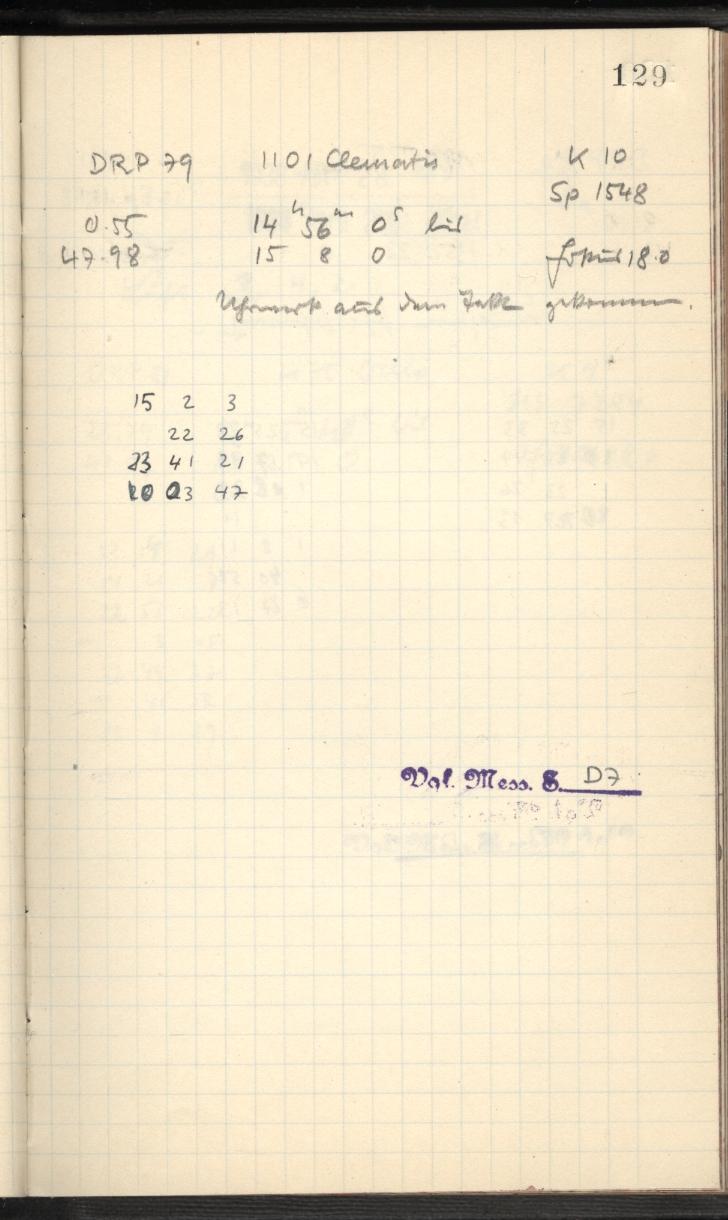 129
DRP 79 1101 Clematis K 10
Sp 1548
0.55 14ʰ 56ᵐ 0ˢ bis
47.98 15 8 0 Fokus 18.0
Uhrwerk aus dem Takt gekommen.
15 2 3
22 26
23 41 21
20 03 47
Vgl. Mess. S. D7